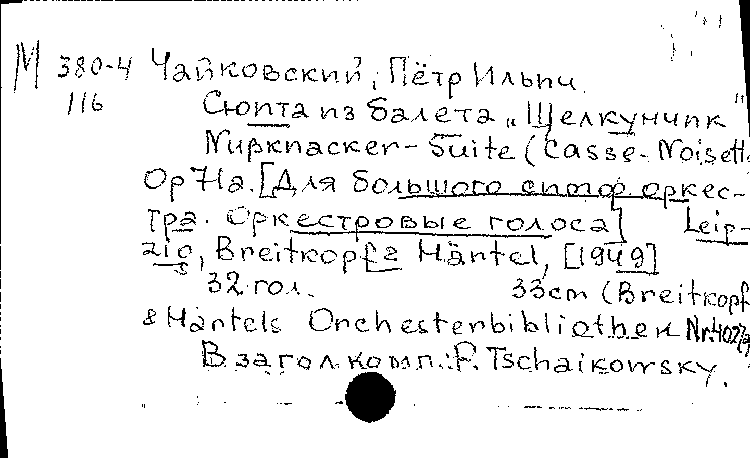 М 380-4 Чайковский, Пётр Ильич.
116 Сюита из балета „Щелкунчик"
Nußknacker-Suite (Casse-Noisett
Op 71a. [Для большого симф. оркес-
тра. Оркестровые голоса] Leip-
zig, Breitkopf & Härtel, [1949]
32 гол. 33cm (Breitkopf
& Härtels Orchesterbibliothek Nr.
В загол. комп.: P. Tschaikowsky.